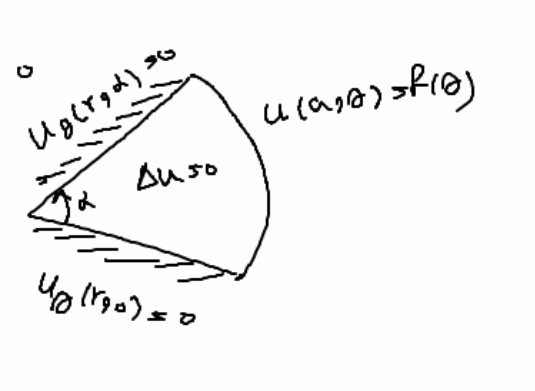 0
u_θ(r,α)=0
u(a,θ)=f(θ)
Δu=0
α
u_θ(r,0)=0